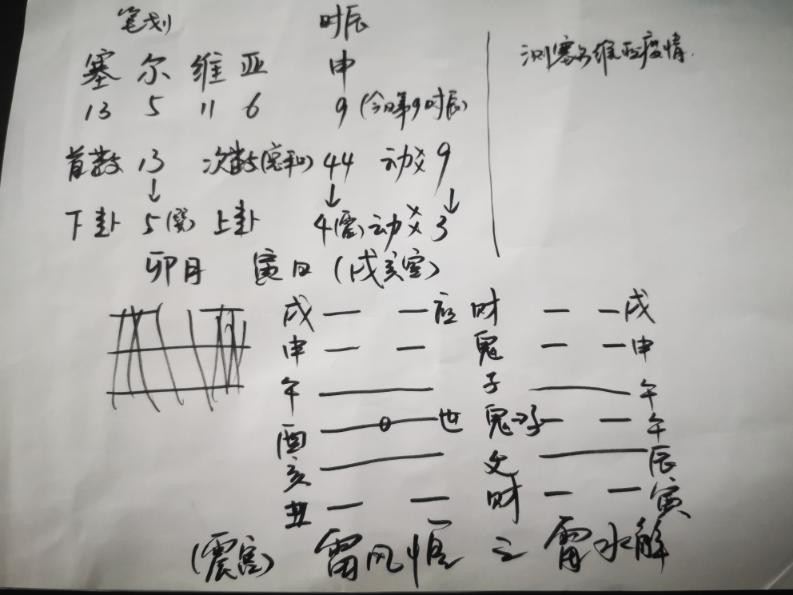 笔划 时辰
测塞尔维亚疫情.
塞 尔 维 亚 申
13 5 11 6 9(今日第9时辰)
首数 13 次数(总和) 44 动爻 9
↓ ↓ ↓
下卦 5(巽) 上卦 4(震) 动爻 3
卯月 寅日(戌亥空)
戌 应 财 戌
申 鬼 申
午 子 午
酉 世 鬼→子 午
亥 父 辰
丑 财 寅
(震宫) 雷风恒 之 雷水解